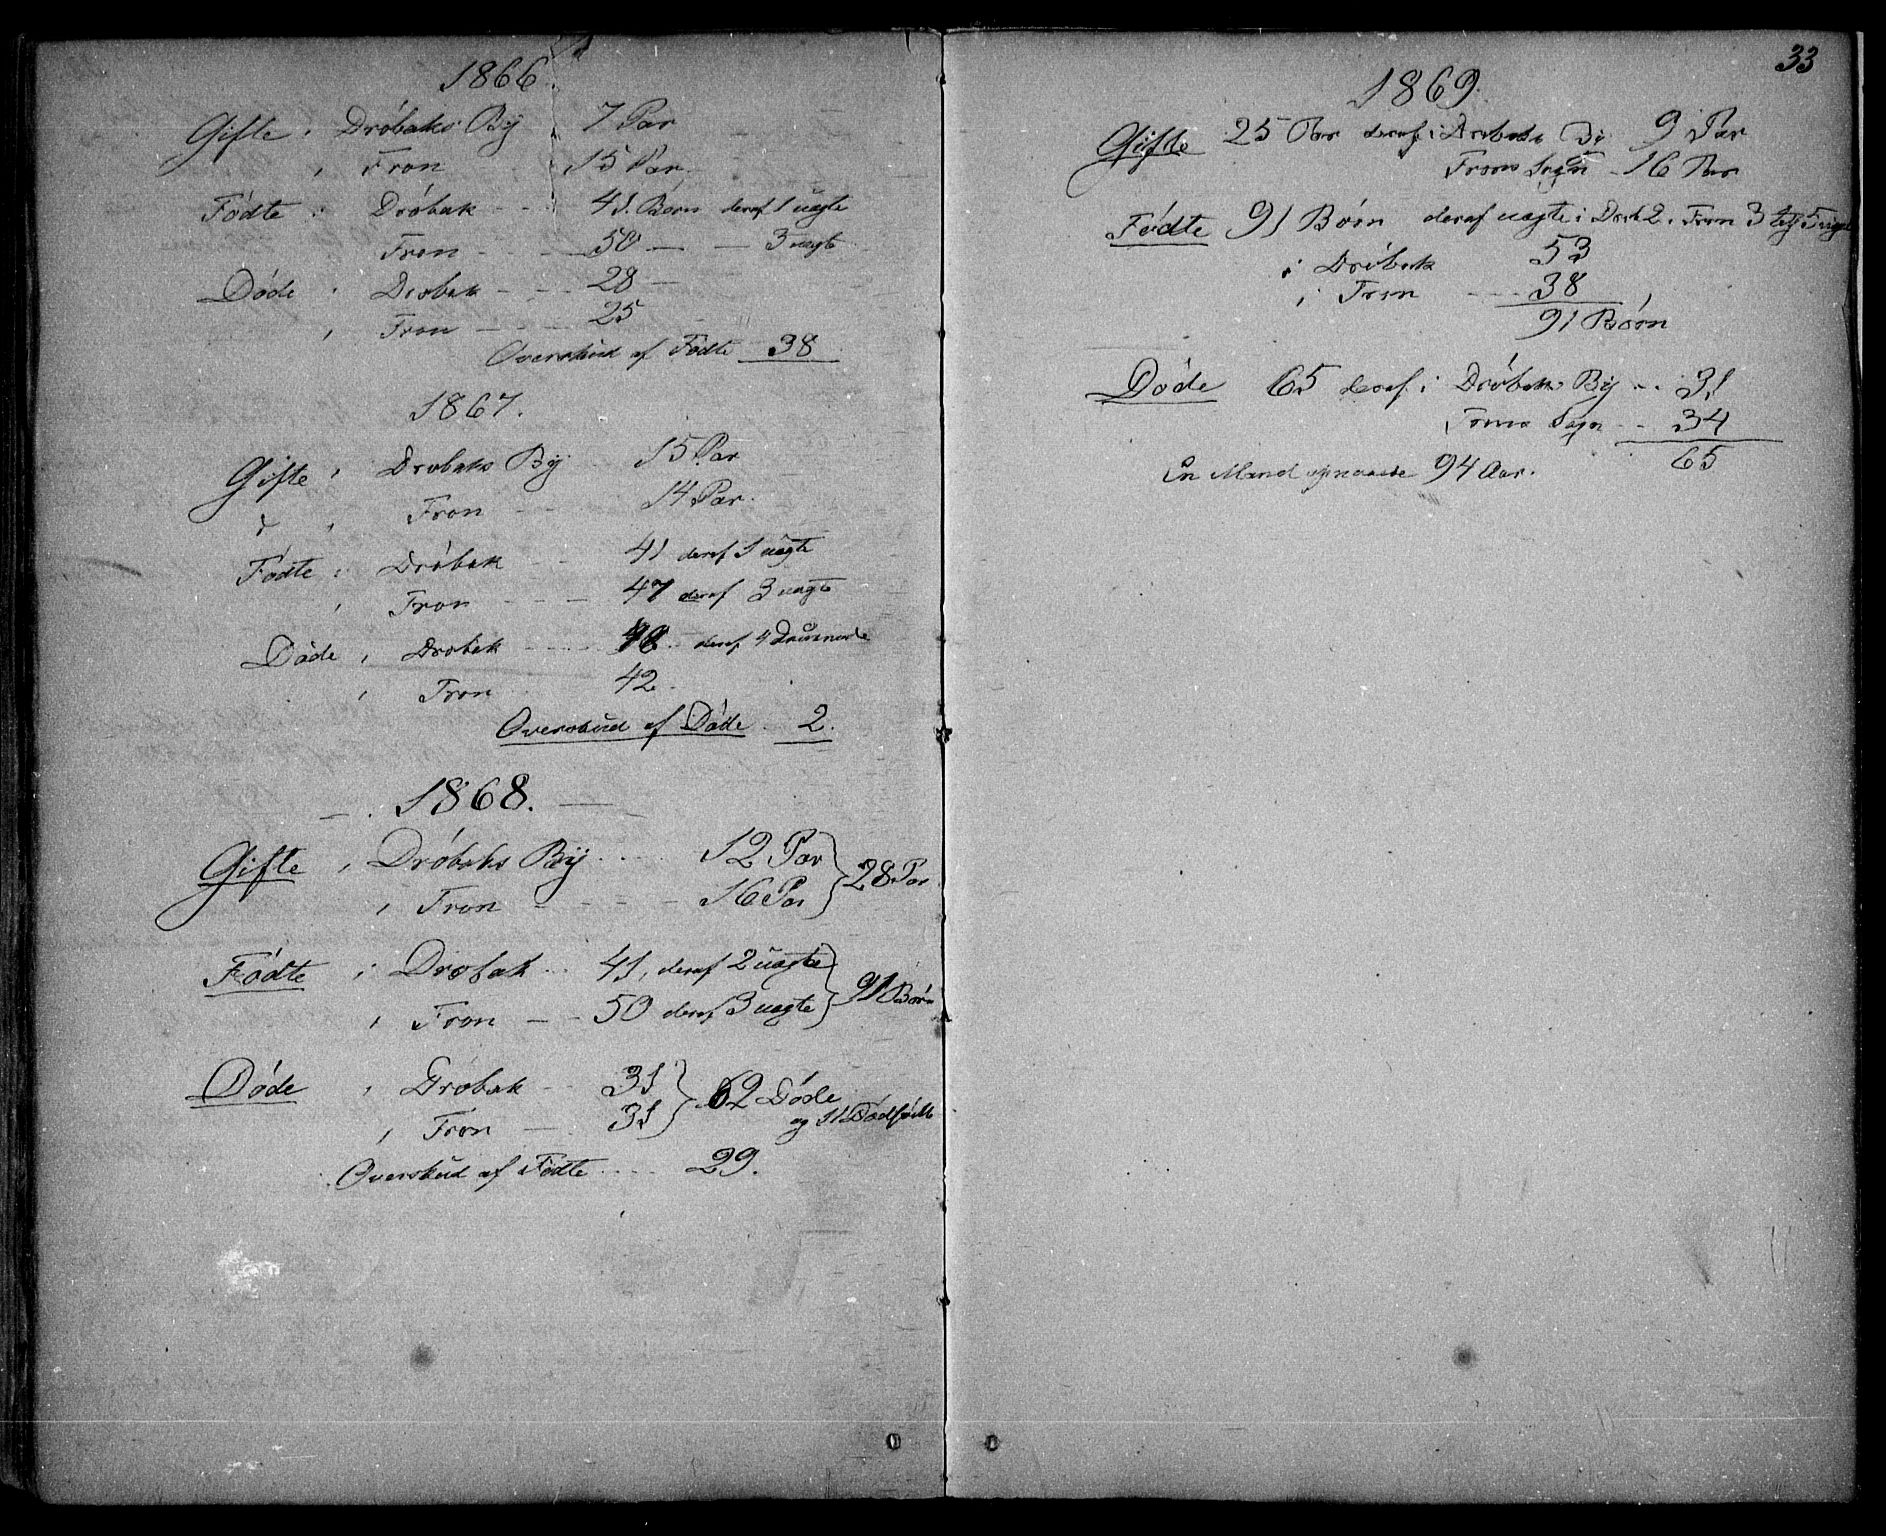 1866.
Gifte i Dröbaks By 7 Par
i Fron 15 Par.
Födte i Dröbak 41. Börn deraf 1 uægte
Fron 50 — — 3 uægte
Döde i Dröbak 28 —
i Fron 25
Overskud af Födte 38
1867.
Gifte i Dröbaks By 15 Par
i Fron 14 Par.
Födte i Dröbak 41 deraf 1 uægte
i Fron 47 deraf 3 uægte
Döde i Dröbak deraf 4 Druknede
i Fron 42.
Overskud af Döde 2.
1868.
Gifte i Dröbaks By 12 Par
i Fron 16 Par } 28 Par
Födte i Dröbak 41, deraf 2 uægte
i Fron 50 deraf 3 uægte } 91 Börn
Döde i Dröbak 31
i Fron 31 } 62 Döde
og 11 Dödfödte
Overskud af Födte 29.
33
1869.
Gifte 25 Par deraf i Dröbaks By 9 Par
Frons Sogn 16 Par
Födte 91 Börn deraf uægte i Dröb 2. Fron 3
i Dröbak 53
i Fron 38
91 Börn
Döde 65 deraf i Dröbaks By 31
Frons Sogn 34
65
En Mand opnaaede 94 Aar.